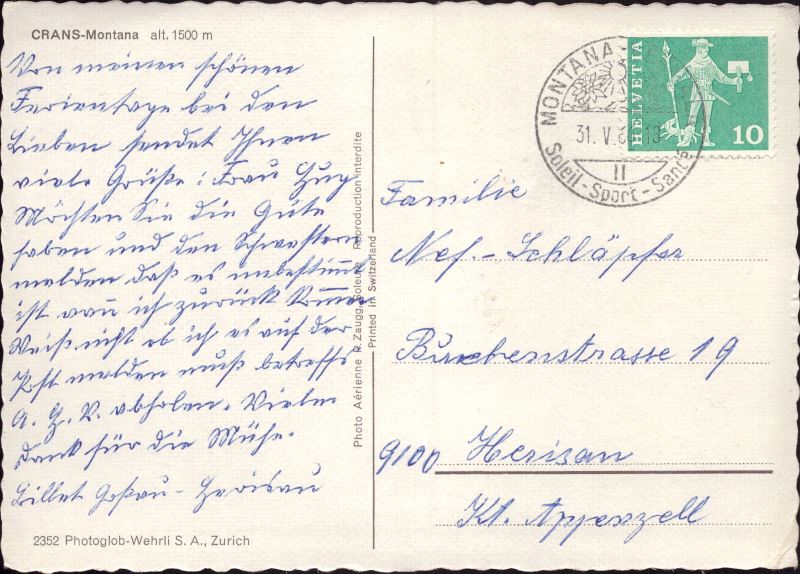 CRANS-Montana alt. 1500 m
Von meinen schönen
Ferientage bei den
Lieben sendet Ihnen
viele Grüße: Frau Hug
Möchten Sie die Güte
haben und den Schwestern
melden daß es unbestimmt
ist wann ich zurück komme
Weiß nicht ob ich es auf der
Post melden muß betreffs
A. H. V. abholen. Vielen
Dank für die Mühe.
Billet Goßau - Herisau
2352 Photoglob-Wehrli S. A., Zurich
Photo Aérienne R. Zaugg, Soleure Reproduction interdite
Printed in Switzerland
MONTANA-
31. V. 6
II
Soleil-Sport-Santé
HELVETIA
10
Familie
Nef-Schläpfer
Buchenstrasse 19
9100 Herisau
Kt. Appenzell